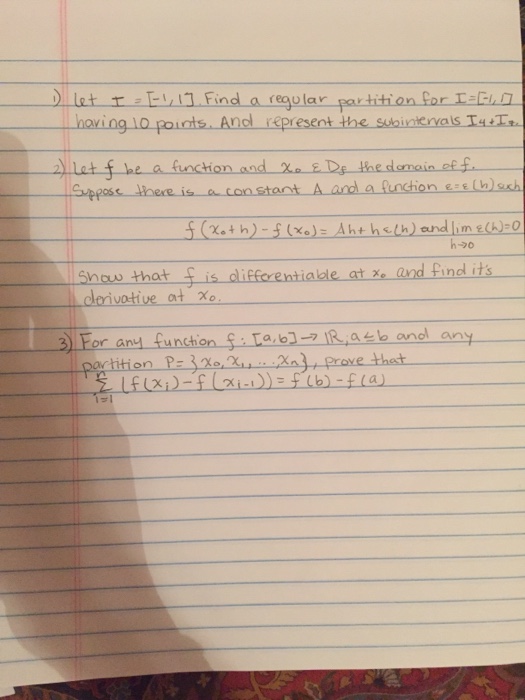 1) Let I = [-1, 1]. Find a regular partition for I=[-1, 1]
having 10 points. And represent the subintervals I4,
2) Let f be a function and x₀ ε Df the domain of f.
Suppose there is a constant A and a function ε=ε(h) such
f(x₀+h)-f(x₀)= Ah+hε(h) and lim ε(h)=0
h→0
Show that f is differentiable at x₀ and find it's
derivative at x₀.
3) For any function f: [a,b]→ℝ, a≤b and any
partition P= }x₀, x₁, ..., xn}, prove that
n
Σ (f(xi)-f(xi-1))= f(b)-f(a)
i=1